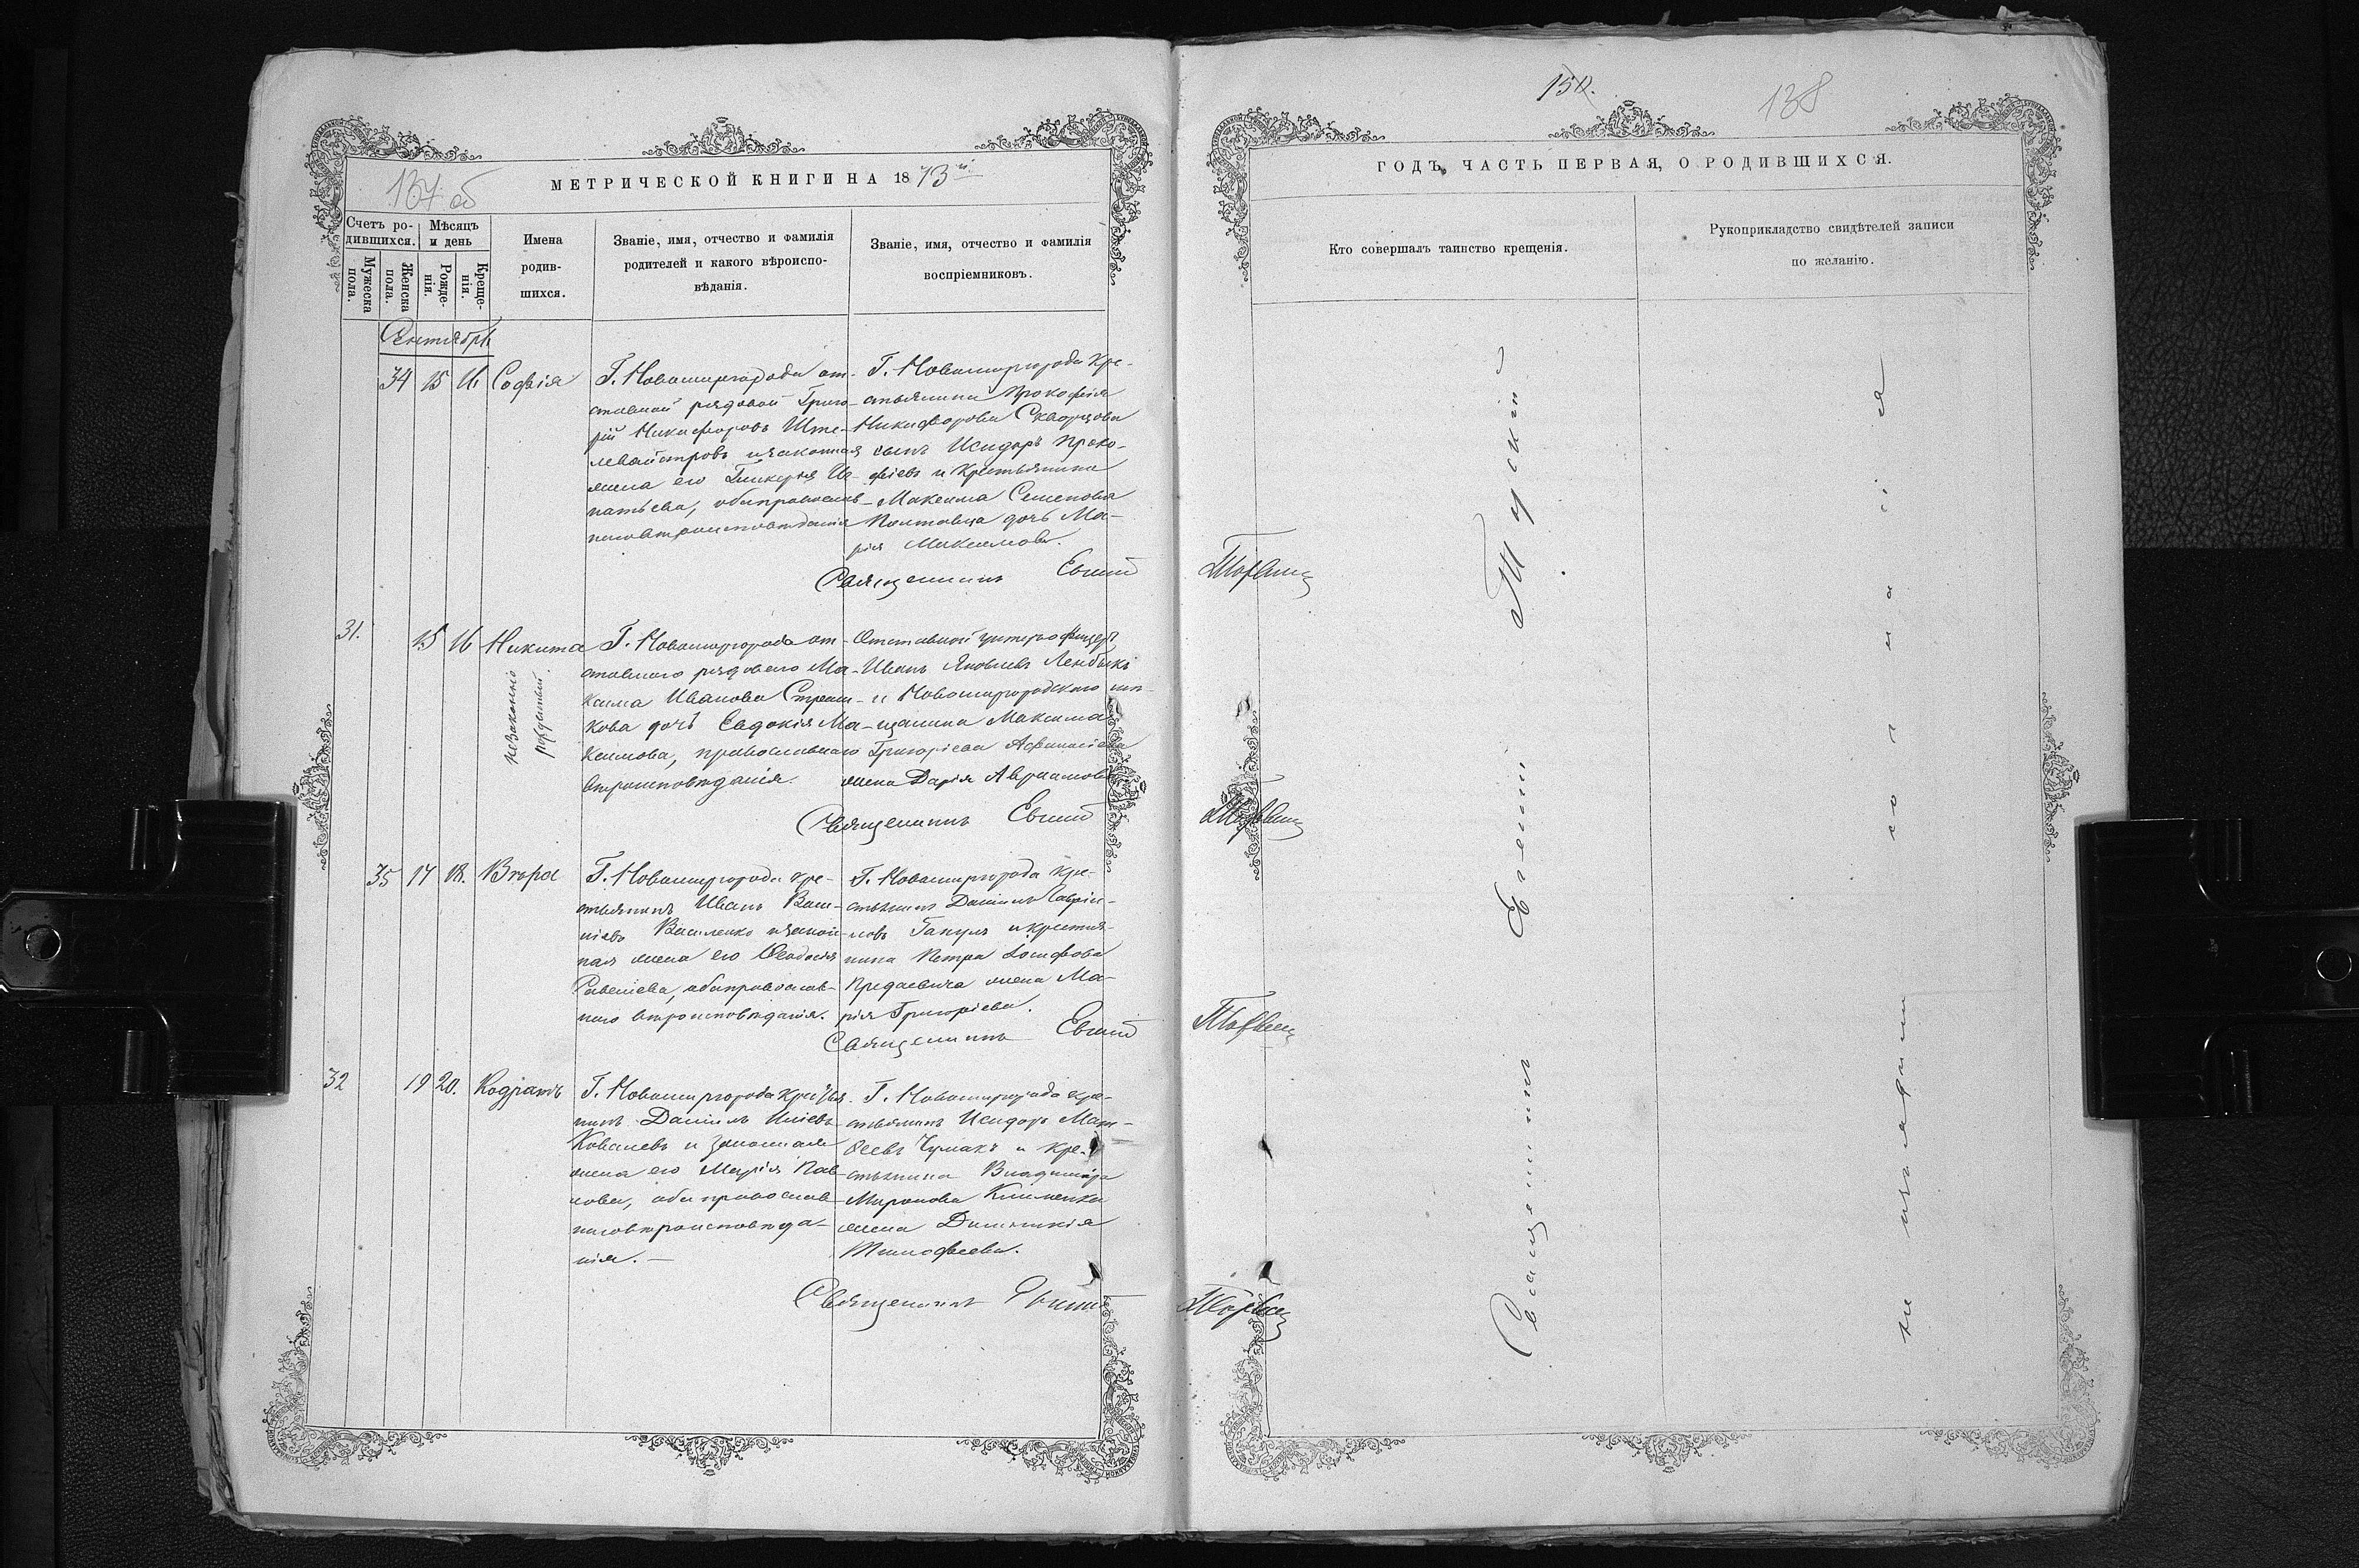 137 об
МЕТРИЧЕСКОЙ КНИГИ НА 1873й
Счетъ родившихся.
Мужеска пола.
Женска пола.
Мѣсяцъ и день
Рожденія.
Крещенія.
Имена родившихся.
Званіе, имя, отчество и фамилія
родителей и какого вѣроиспо-
вѣданія.
Званіе, имя, отчество и фамилія
воспріемниковъ.
Сентябрь
34 15 16 Софія
Г. Новомиргорода от-
ставной рядовой Григо-
рій Никифоровъ
и законная
жена его Гликерія Иг-
натьева, оба православ-
наго вѣроисповѣданія
Г. Новомиргорода кре-
стьянина Прокофія
Никифорова Скворцова
сынъ Исидоръ Проко-
фіевъ и крестьянина
Максима Семенова
Полтавца дочь Ма-
рія Максимова.
Священникъ Евгеній
31. 15 16 Никита
незаконно
рожденный
Г. Новомиргорода от-
ставного рядового Ма-
ксима Иванова
кова дочь Евдокія Ма-
ксимова, православнаго
вѣроисповѣданія.
Отставной унтерофицеръ
Иванъ Яковлевъ
и Новомиргородскаго мѣ-
щанина Максима
Григоріева Афанасіева
жена Дарія Авраамова
Священникъ Евгеній
35 17 18. Вѣра
Г. Новомиргорода кре-
стьянинъ Иванъ Васи-
ліевъ Василенко и закон-
ная жена его Ѳеодосія
Савеліева, оба православ-
наго вѣроисповѣданія.
Г. Новомиргорода кре-
стьянинъ Даніилъ Гавріи-
ловъ и крестья-
нина Петра Іосифова
жена Ма-
рія Григоріева.
Священникъ Евгеній
32 19 20. Кодратъ
Г. Новомиргорода крестья-
нинъ Даніилъ Иліевъ
Ковалевъ и законная
жена его Марія Пав-
лова, оба православ-
наго вѣроисповѣда-
нія.—
Г. Новомиргорода кре-
стьянинъ Исидоръ Мат-
ѳеевъ Чумакъ и кре-
стьянина Владиміра
Миронова Клименка
жена Домникія
Тимофеева.
Священникъ Евгеній
150.
138
ГОДЪ, ЧАСТЬ ПЕРВАЯ, О РОДИВШИХСЯ.
Кто совершалъ таинство крещенія.
Рукоприкладство свидѣтелей записи
по желанію.
Священникъ Евгеній